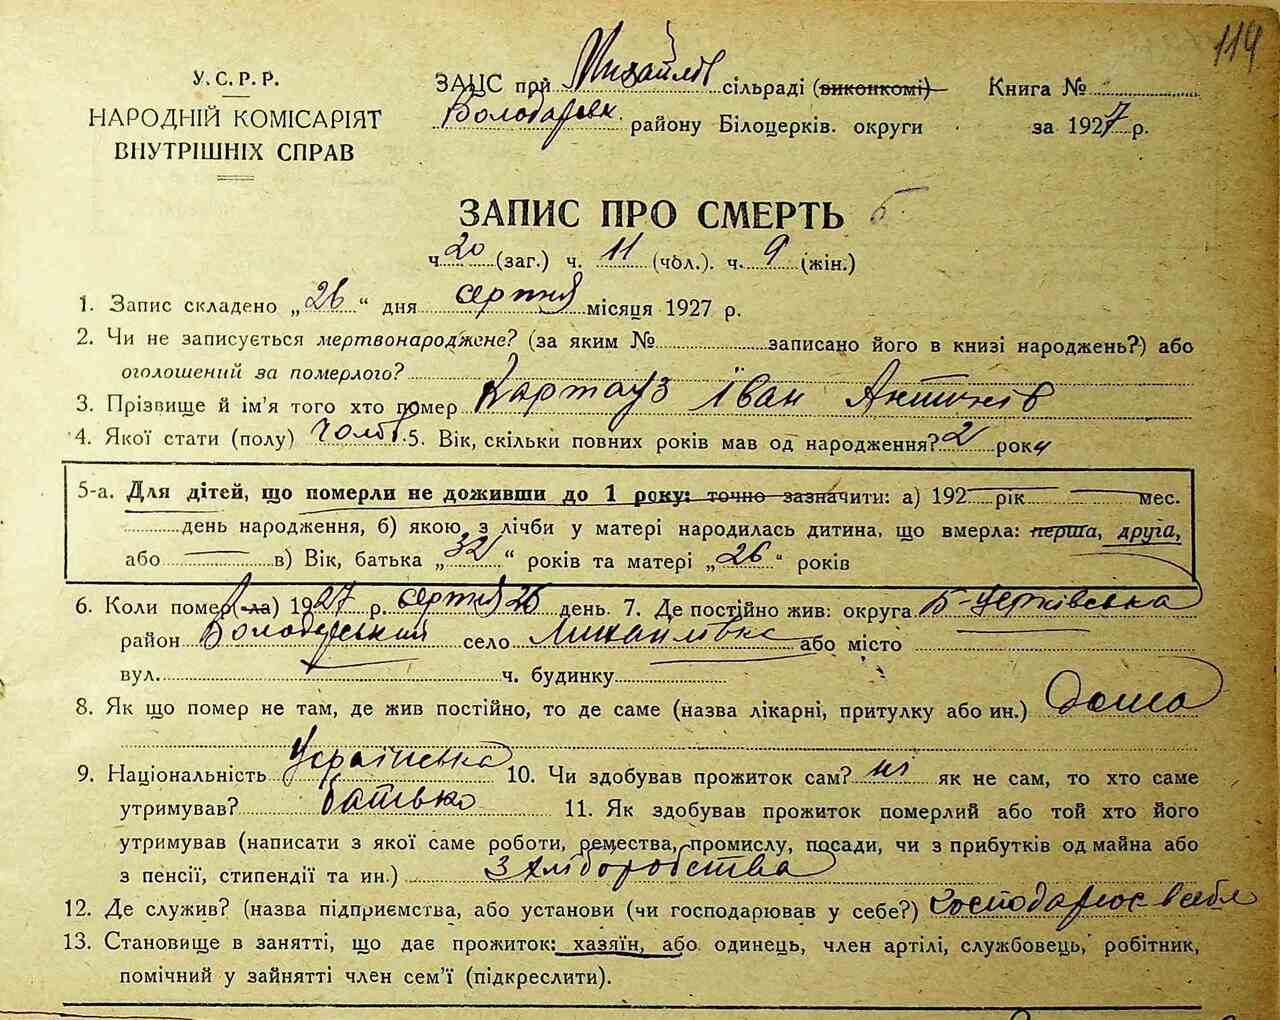 114
У.С.Р.Р.
НАРОДНІЙ КОМІСАРІЯТ
ВНУТРІШНІХ СПРАВ
ЗАЦС при Михайлів сільраді (виконкомі) Книга №
Володарськ. району Білоцерків. округи за 1927 р.
ЗАПИС ПРО СМЕРТЬ
ч. 20 (заг.) ч. 11 (чол.). ч. 9 (жін.)
1. Запис складено „26“ дня серпня місяця 1927 р.
2. Чи не записується мертвонароджене? (за яким № записано його в книзі народжень?) або
оголошений за померлого?
3. Прізвище й ім'я того хто помер Картауз Іван Антонів
4. Якої стати (полу) чолов. 5. Вік, скільки повних років мав од народження? 2 роки
5-а. Для дітей, що померли не доживши до 1 року: точно зазначити: а) 192 рік мес.
день народження, б) якою з лічби у матері народилась дитина, що вмерла: перша, друга,
або в) Вік, батька „32“ років та матері „26“ років
6. Коли помер(-ла) 1927 р. серпня 26 день. 7. Де постійно жив: округа Б-Церківська
район Володарський село Михайлівка або місто
вул. ч. будинку
8. Як що помер не там, де жив постійно, то де саме (назва лікарні, притулку або ин.) Дома
9. Національність Українська 10. Чи здобував прожиток сам? ні як не сам, то хто саме
утримував? батько 11. Як здобував прожиток померлий або той хто його
утримував (написати з якої саме роботи, ремества, промислу, посади, чи з прибутків од майна або
з пенсії, стипендії та ин.) З хліборобства
12. Де служив? (назва підприємства, або установи (чи господарював у себе?) Господарює в себе
13. Становище в занятті, що дає прожиток: хазяїн, або одинець, член артілі, службовець, робітник,
помічний у зайнятті член сем'ї (підкреслити).